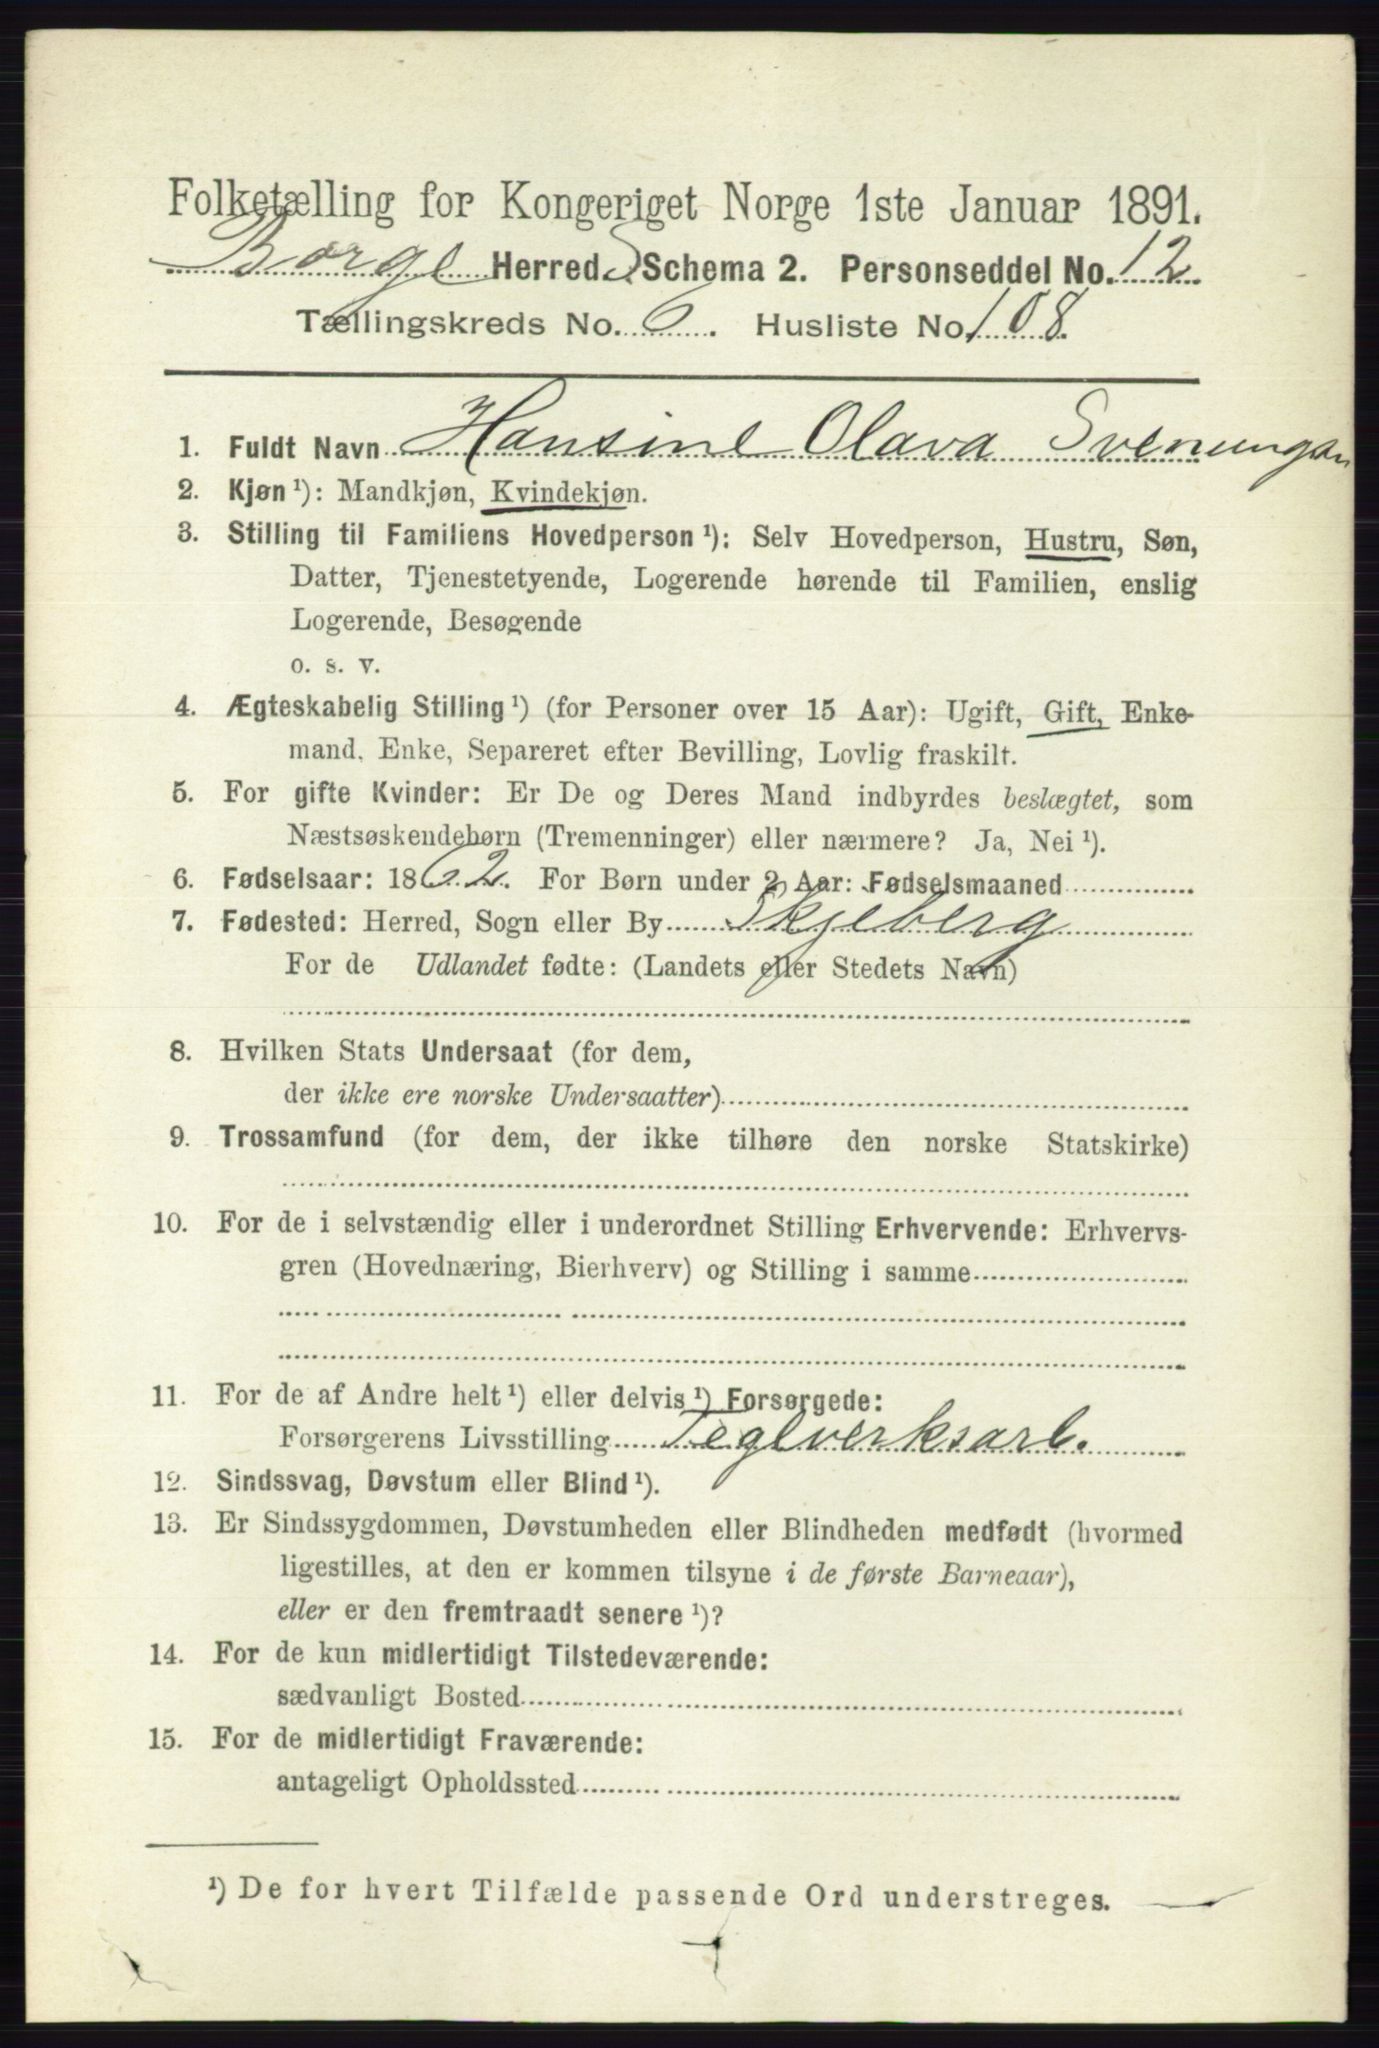 Folketælling for Kongeriget Norge 1ste Januar 1891.
Borge Herred. Schema 2. Personseddel No. 12
Tællingskreds No. 6. Husliste No. 108.
1. Fuldt Navn Hansine Olava Svenungsen
2. Kjøn¹): Mandkjøn, Kvindekjøn.
3. Stilling til Familiens Hovedperson¹): Selv Hovedperson, Hustru, Søn,
Datter, Tjenestetyende, Logerende hørende til Familien, enslig
Logerende, Besøgende
o. s. v.
4. Ægteskabelig Stilling¹) (for Personer over 15 Aar): Ugift, Gift, Enke-
mand, Enke, Separeret efter Bevilling, Lovlig fraskilt.
5. For gifte Kvinder: Er De og Deres Mand indbyrdes beslægtet, som
Næstsøskendebørn (Tremenninger) eller nærmere? Ja, Nei¹).
6. Fødselsaar: 1862. For Børn under 2 Aar: Fødselsmaaned
7. Fødested: Herred, Sogn eller By Skjeberg
For de Udlandet fødte: (Landets eller Stedets Navn)
8. Hvilken Stats Undersaat (for dem,
der ikke ere norske Undersaatter)
9. Trossamfund (for dem, der ikke tilhøre den norske Statskirke)
10. For de i selvstændig eller i underordnet Stilling Erhvervende: Erhvervs-
gren (Hovednæring, Bierhverv) og Stilling i samme
11. For de af Andre helt¹) eller delvis¹) Forsørgede:
Forsørgerens Livsstilling Teglverksarb.
12. Sindssvag, Døvstum eller Blind¹).
13. Er Sindssygdommen, Døvstumheden eller Blindheden medfødt (hvormed
ligestilles, at den er kommen tilsyne i de første Barneaar),
eller er den fremtraadt senere¹)?
14. For de kun midlertidigt Tilstedeværende:
sædvanligt Bosted
15. For de midlertidigt Fraværende:
antageligt Opholdssted
¹) De for hvert Tilfælde passende Ord understreges.